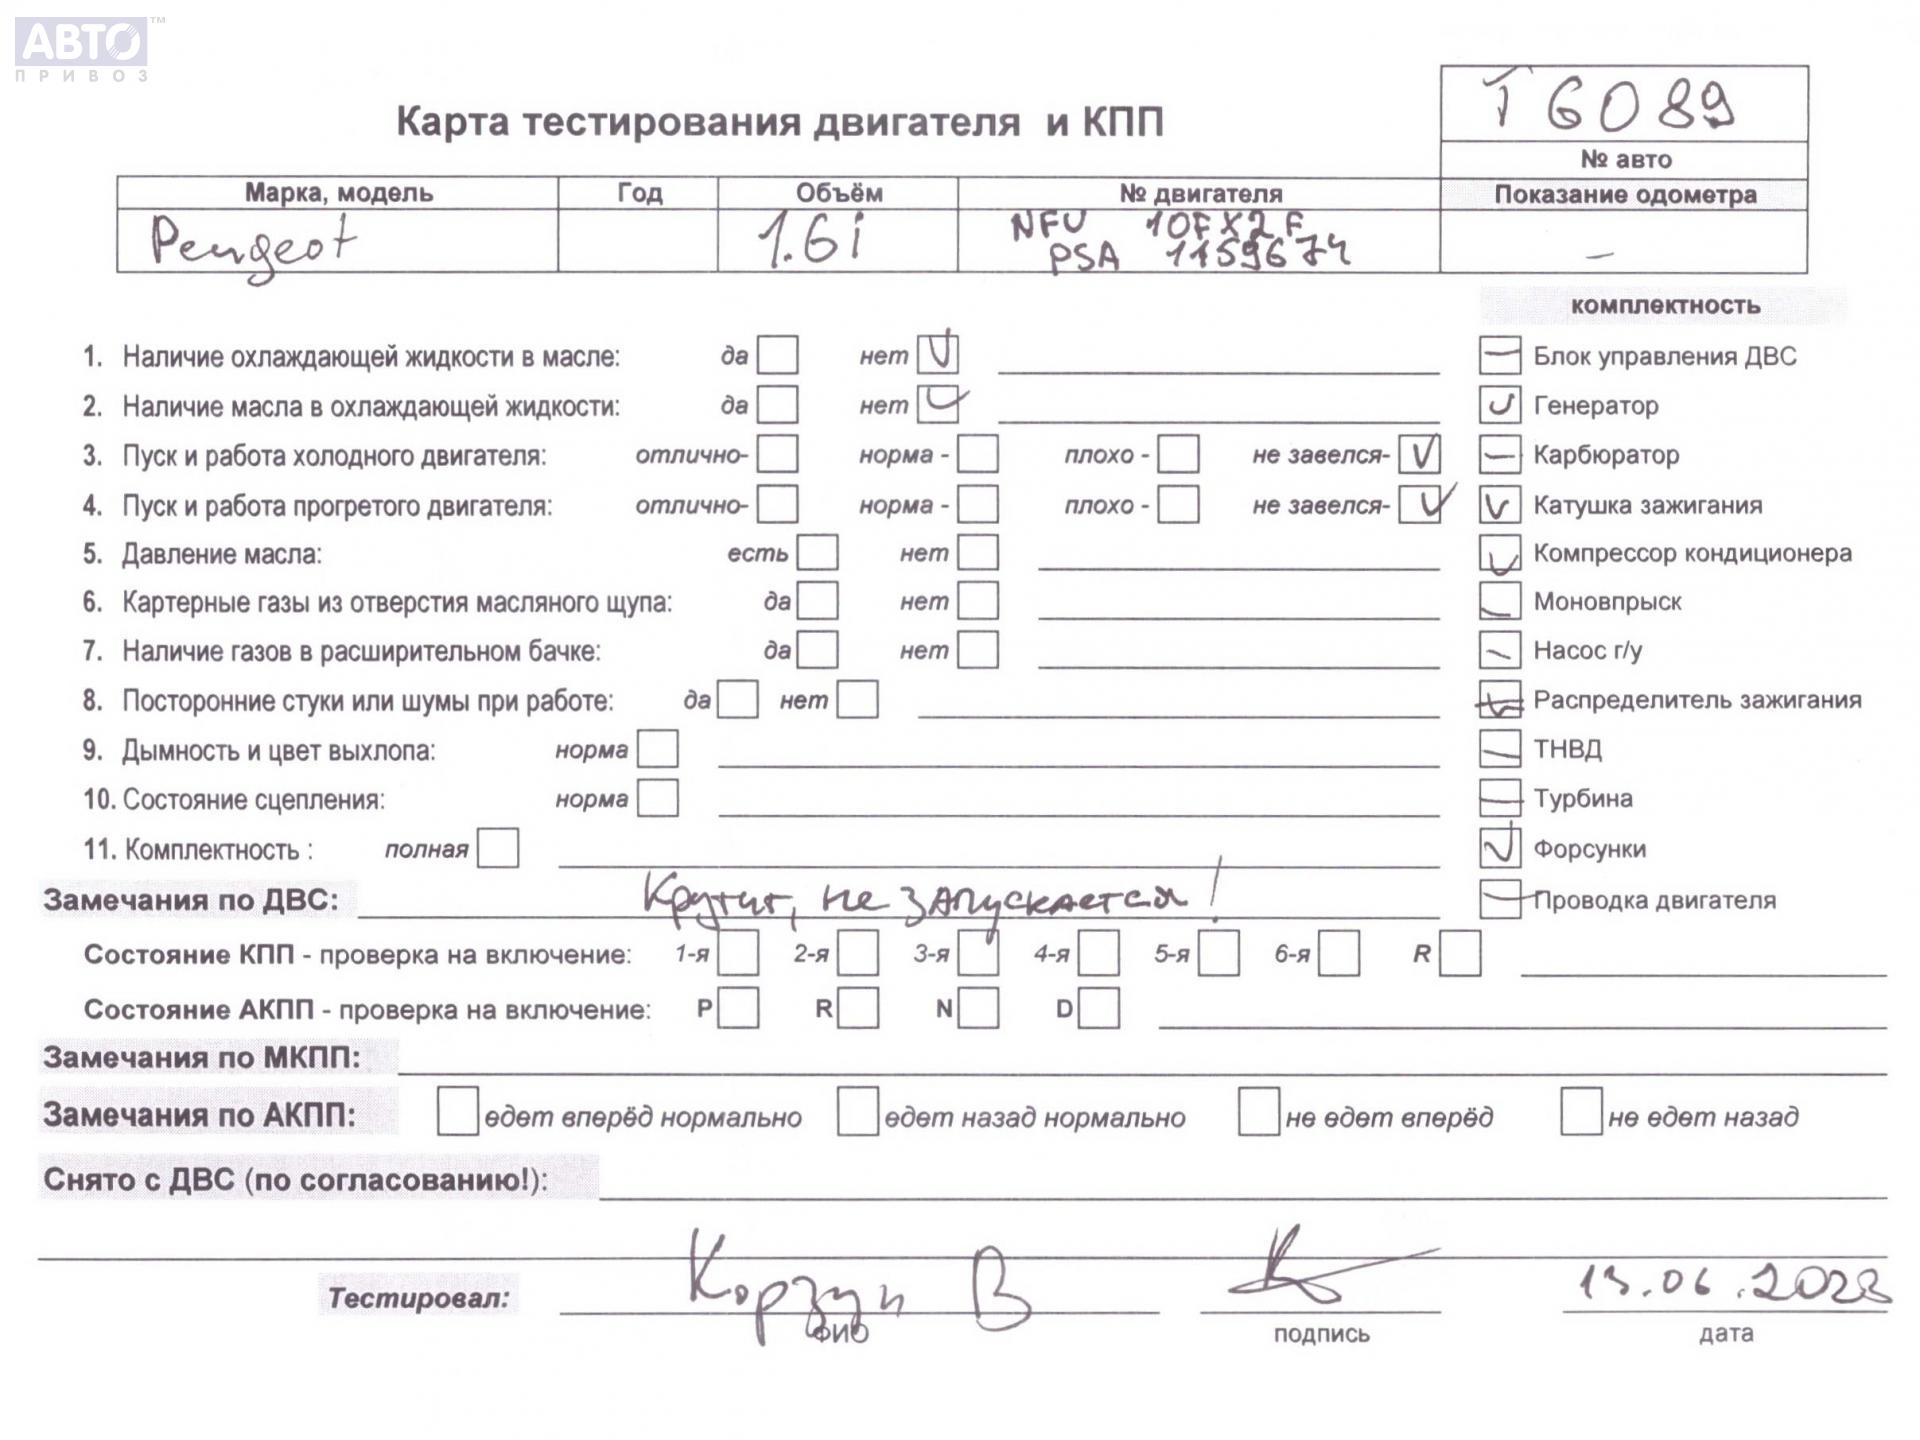 АВТО™
ПРИВОЗ
T 6089
Карта тестирования двигателя и КПП
№ авто
Марка, модель Год Объём № двигателя Показание одометра
Peugeot 1.6i NFU 10FX2F –
PSA 1159674
комплектность
1. Наличие охлаждающей жидкости в масле: да нет V Блок управления ДВС
2. Наличие масла в охлаждающей жидкости: да нет V Генератор
3. Пуск и работа холодного двигателя: отлично- норма - плохо - не завелся- V Карбюратор
4. Пуск и работа прогретого двигателя: отлично- норма - плохо - не завелся- V Катушка зажигания
5. Давление масла: есть нет Компрессор кондиционера
6. Картерные газы из отверстия масляного щупа: да нет Моновпрыск
7. Наличие газов в расширительном бачке: да нет Насос г/у
8. Посторонние стуки или шумы при работе: да нет Распределитель зажигания
9. Дымность и цвет выхлопа: норма ТНВД
10. Состояние сцепления: норма Турбина
11. Комплектность : полная Форсунки
Замечания по ДВС: Крутит, не запускается! Проводка двигателя
Состояние КПП - проверка на включение: 1-я 2-я 3-я 4-я 5-я 6-я R
Состояние АКПП - проверка на включение: P R N D
Замечания по МКПП:
Замечания по АКПП: едет вперёд нормально едет назад нормально не едет вперёд не едет назад
Снято с ДВС (по согласованию!):
Тестировал: Корзун В 13.06.2023
ФИО подпись дата